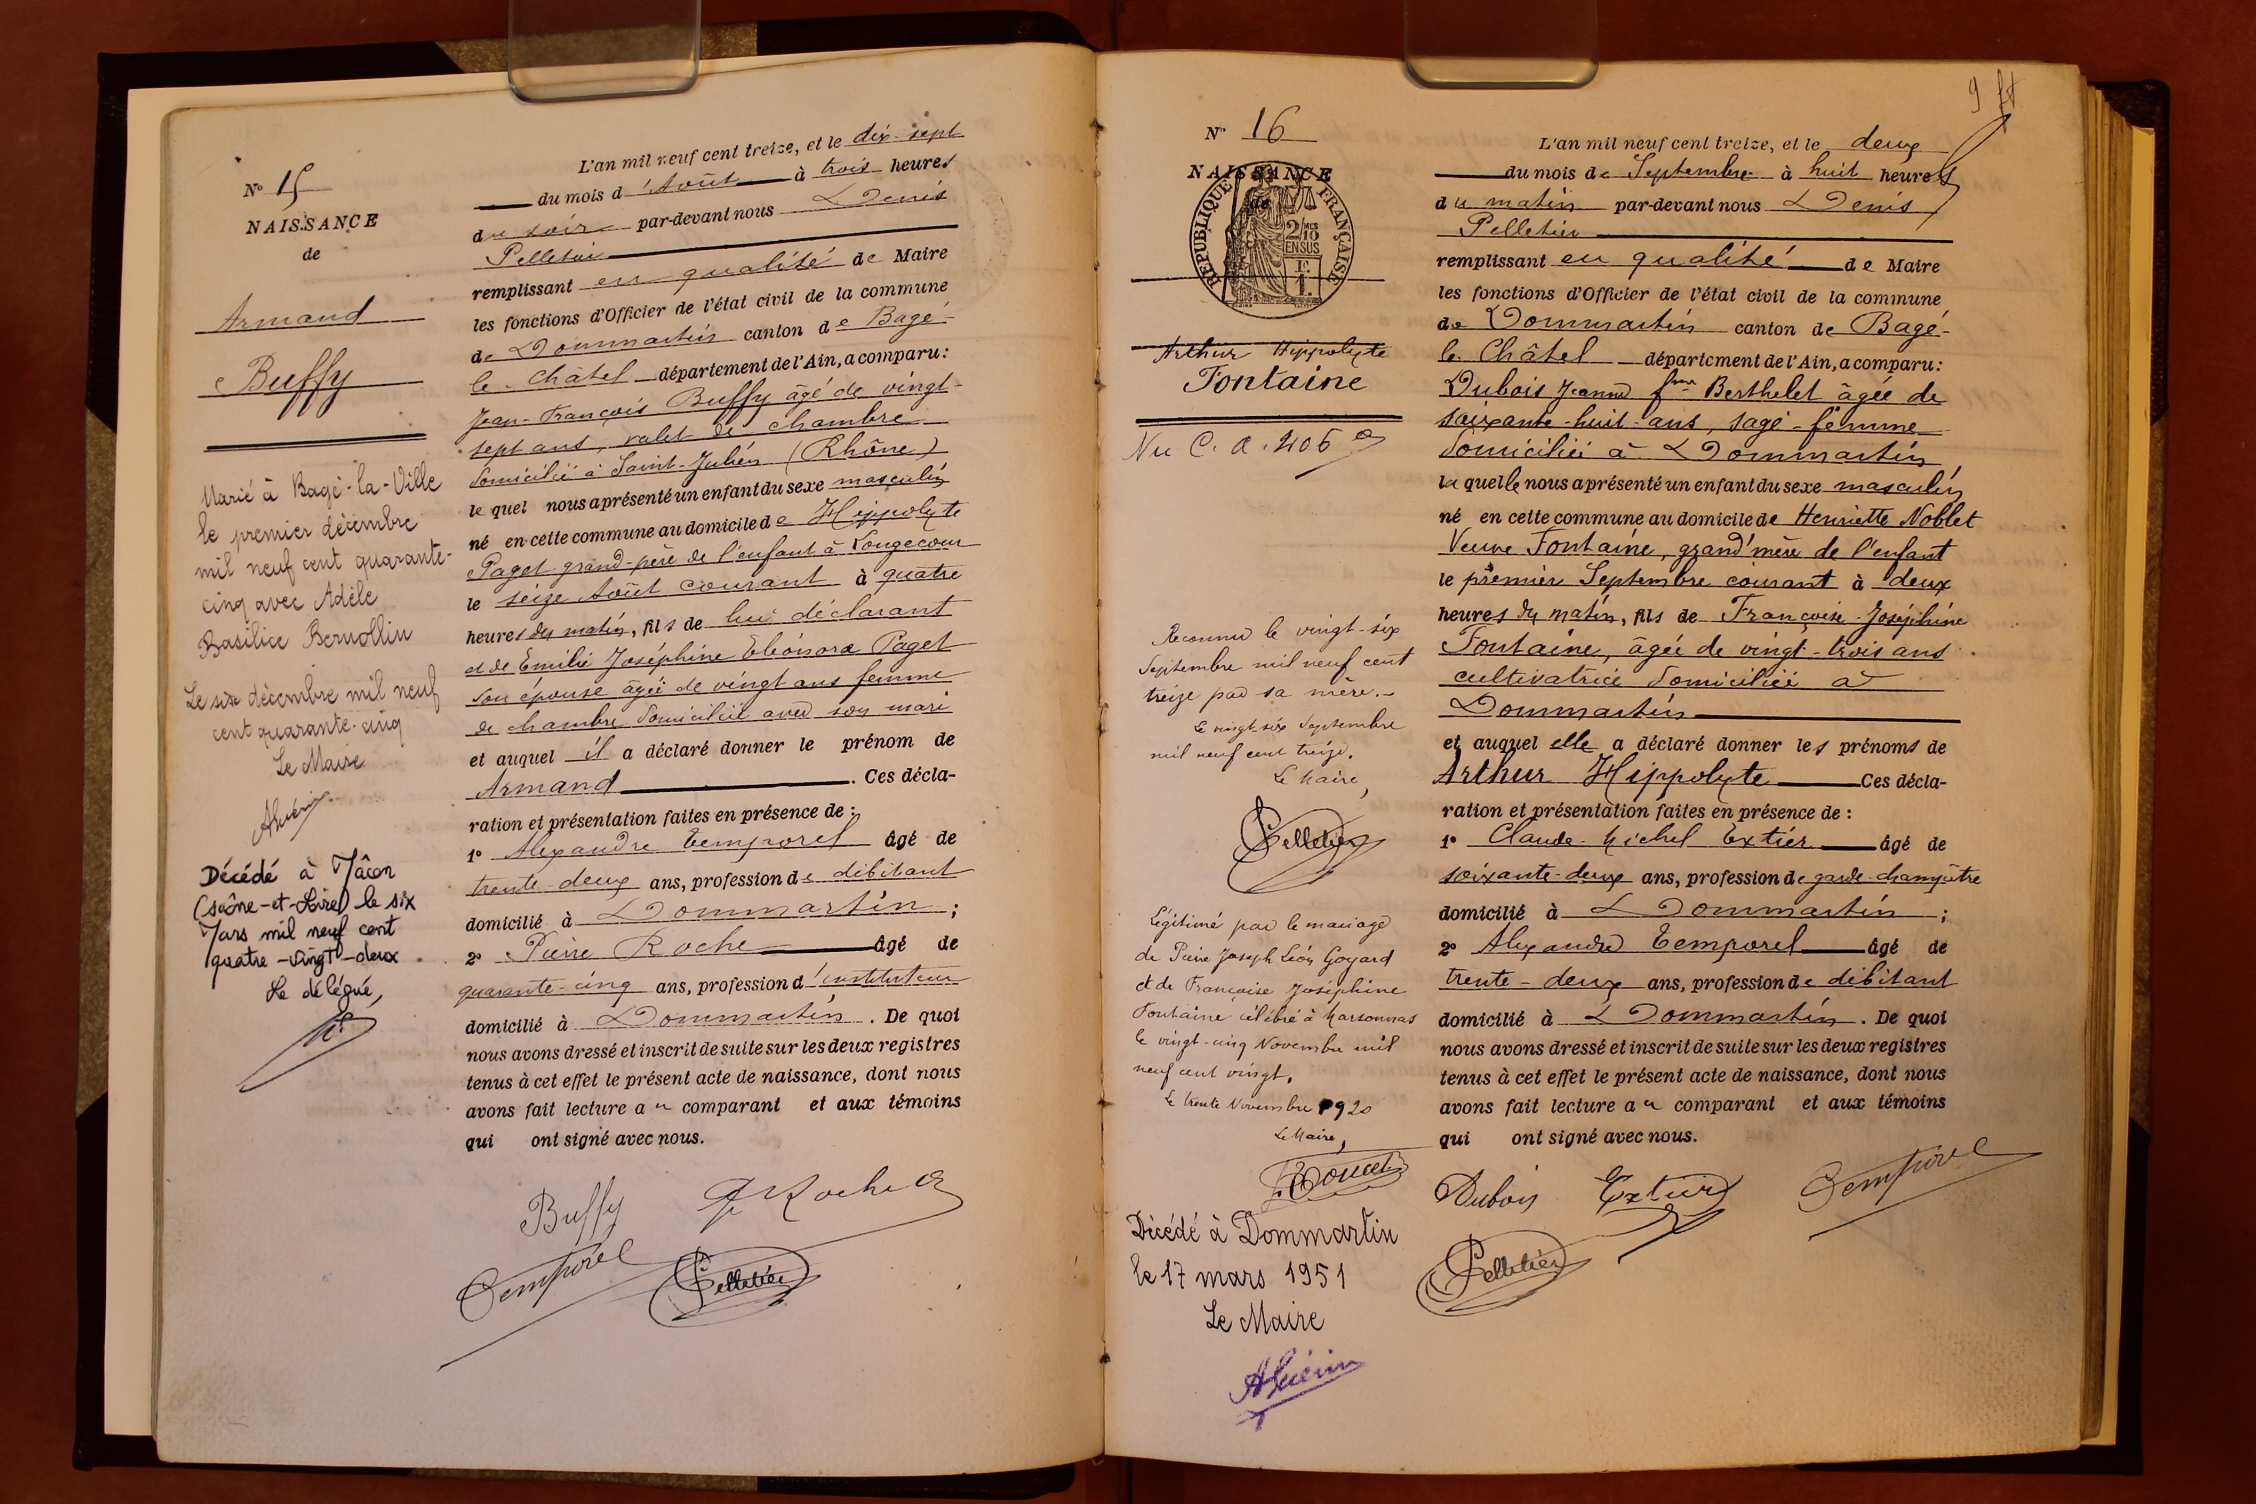 N° 15
NAISSANCE
de
Armand
Buffy
Marié à Bagé-la-Ville
le premier décembre
mil neuf cent quarante-
cinq avec Adèle
Basilice Bernollin
Le six décembre mil neuf
cent quarante-cinq
Le Maire
Décédé à Mâcon
(Saône-et-Loire) le six
Mars mil neuf cent
quatre-vingt-deux
Le délégué,
L'an mil neuf cent treize, et le dix-sept
du mois d'Août à trois heures
du soir par-devant nous Denis
Pelletier
remplissant en qualité de Maire
les fonctions d'Officier de l'état civil de la commune
de Dommartin canton de Bagé-
le-Châtel département de l'Ain, a comparu:
Jean-François Buffy âgé de vingt-
sept ans, valet de chambre
domicilié à Saint-Julien (Rhône)
lequel nous a présenté un enfant du sexe masculin
né en cette commune au domicile de Hippolyte
Paget grand-père de l'enfant à Longecour
le seize Août courant à quatre
heures du matin, fils de lui déclarant
et de Emilie Joséphine Eléonora Paget
son épouse âgée de vingt ans femme
de chambre domiciliée avec son mari
et auquel il a déclaré donner le prénom de
Armand . Ces décla-
ration et présentation faites en présence de :
1° Alexandre Temporel âgé de
trente-deux ans, profession de débitant
domicilié à Dommartin ;
2° Pierre Roche âgé de
quarante-cinq ans, profession d'instituteur
domicilié à Dommartin . De quoi
nous avons dressé et inscrit de suite sur les deux registres
tenus à cet effet le présent acte de naissance, dont nous
avons fait lecture au comparant et aux témoins
qui ont signé avec nous.
Buffy P Roche
Temporel Pelletier
9
N° 16
NAISSANCE
de
REPUBLIQUE FRANÇAISE
2/10
EN SUS
F.
1.
Arthur Hippolyte
Fontaine
Nu C. a. 406
Reconnu le vingt-six
Septembre mil neuf cent
treize par sa mère.-
Le vingt-six Septembre
mil neuf cent treize.
Le Maire,
Pelletier
Légitimé par le mariage
de Pierre Joseph Léon Goyard
et de Françoise Joséphine
Fontaine célébré à Marsonnas
le vingt-cinq Novembre mil
neuf cent vingt.
Le trente Novembre 1920
Le Maire,
Décédé à Dommartin
le 17 mars 1951
Le Maire
L'an mil neuf cent treize, et le deux
du mois de Septembre à huit heures
du matin par-devant nous Denis
Pelletier
remplissant en qualité de Maire
les fonctions d'Officier de l'état civil de la commune
de Dommartin canton de Bagé-
le-Châtel département de l'Ain, a comparu:
Dubois Jeanne fme Berthelet âgée de
soixante-huit ans, sage-femme
domiciliée à Dommartin
laquelle nous a présenté un enfant du sexe masculin
né en cette commune au domicile de Henriette Noblet
Veuve Fontaine, grand'mère de l'enfant
le premier Septembre courant à deux
heures du matin, fils de Françoise-Joséphine
Fontaine, âgée de vingt-trois ans
cultivatrice domiciliée à
Dommartin
et auquel elle a déclaré donner les prénoms de
Arthur Hippolyte Ces décla-
ration et présentation faites en présence de :
1° Claude-Michel Extier âgé de
soixante-deux ans, profession de garde-champêtre
domicilié à Dommartin ;
2° Alexandre Temporel âgé de
trente-deux ans, profession de débitant
domicilié à Dommartin . De quoi
nous avons dressé et inscrit de suite sur les deux registres
tenus à cet effet le présent acte de naissance, dont nous
avons fait lecture au comparant et aux témoins
qui ont signé avec nous.
Dubois Extier Temporel
Pelletier